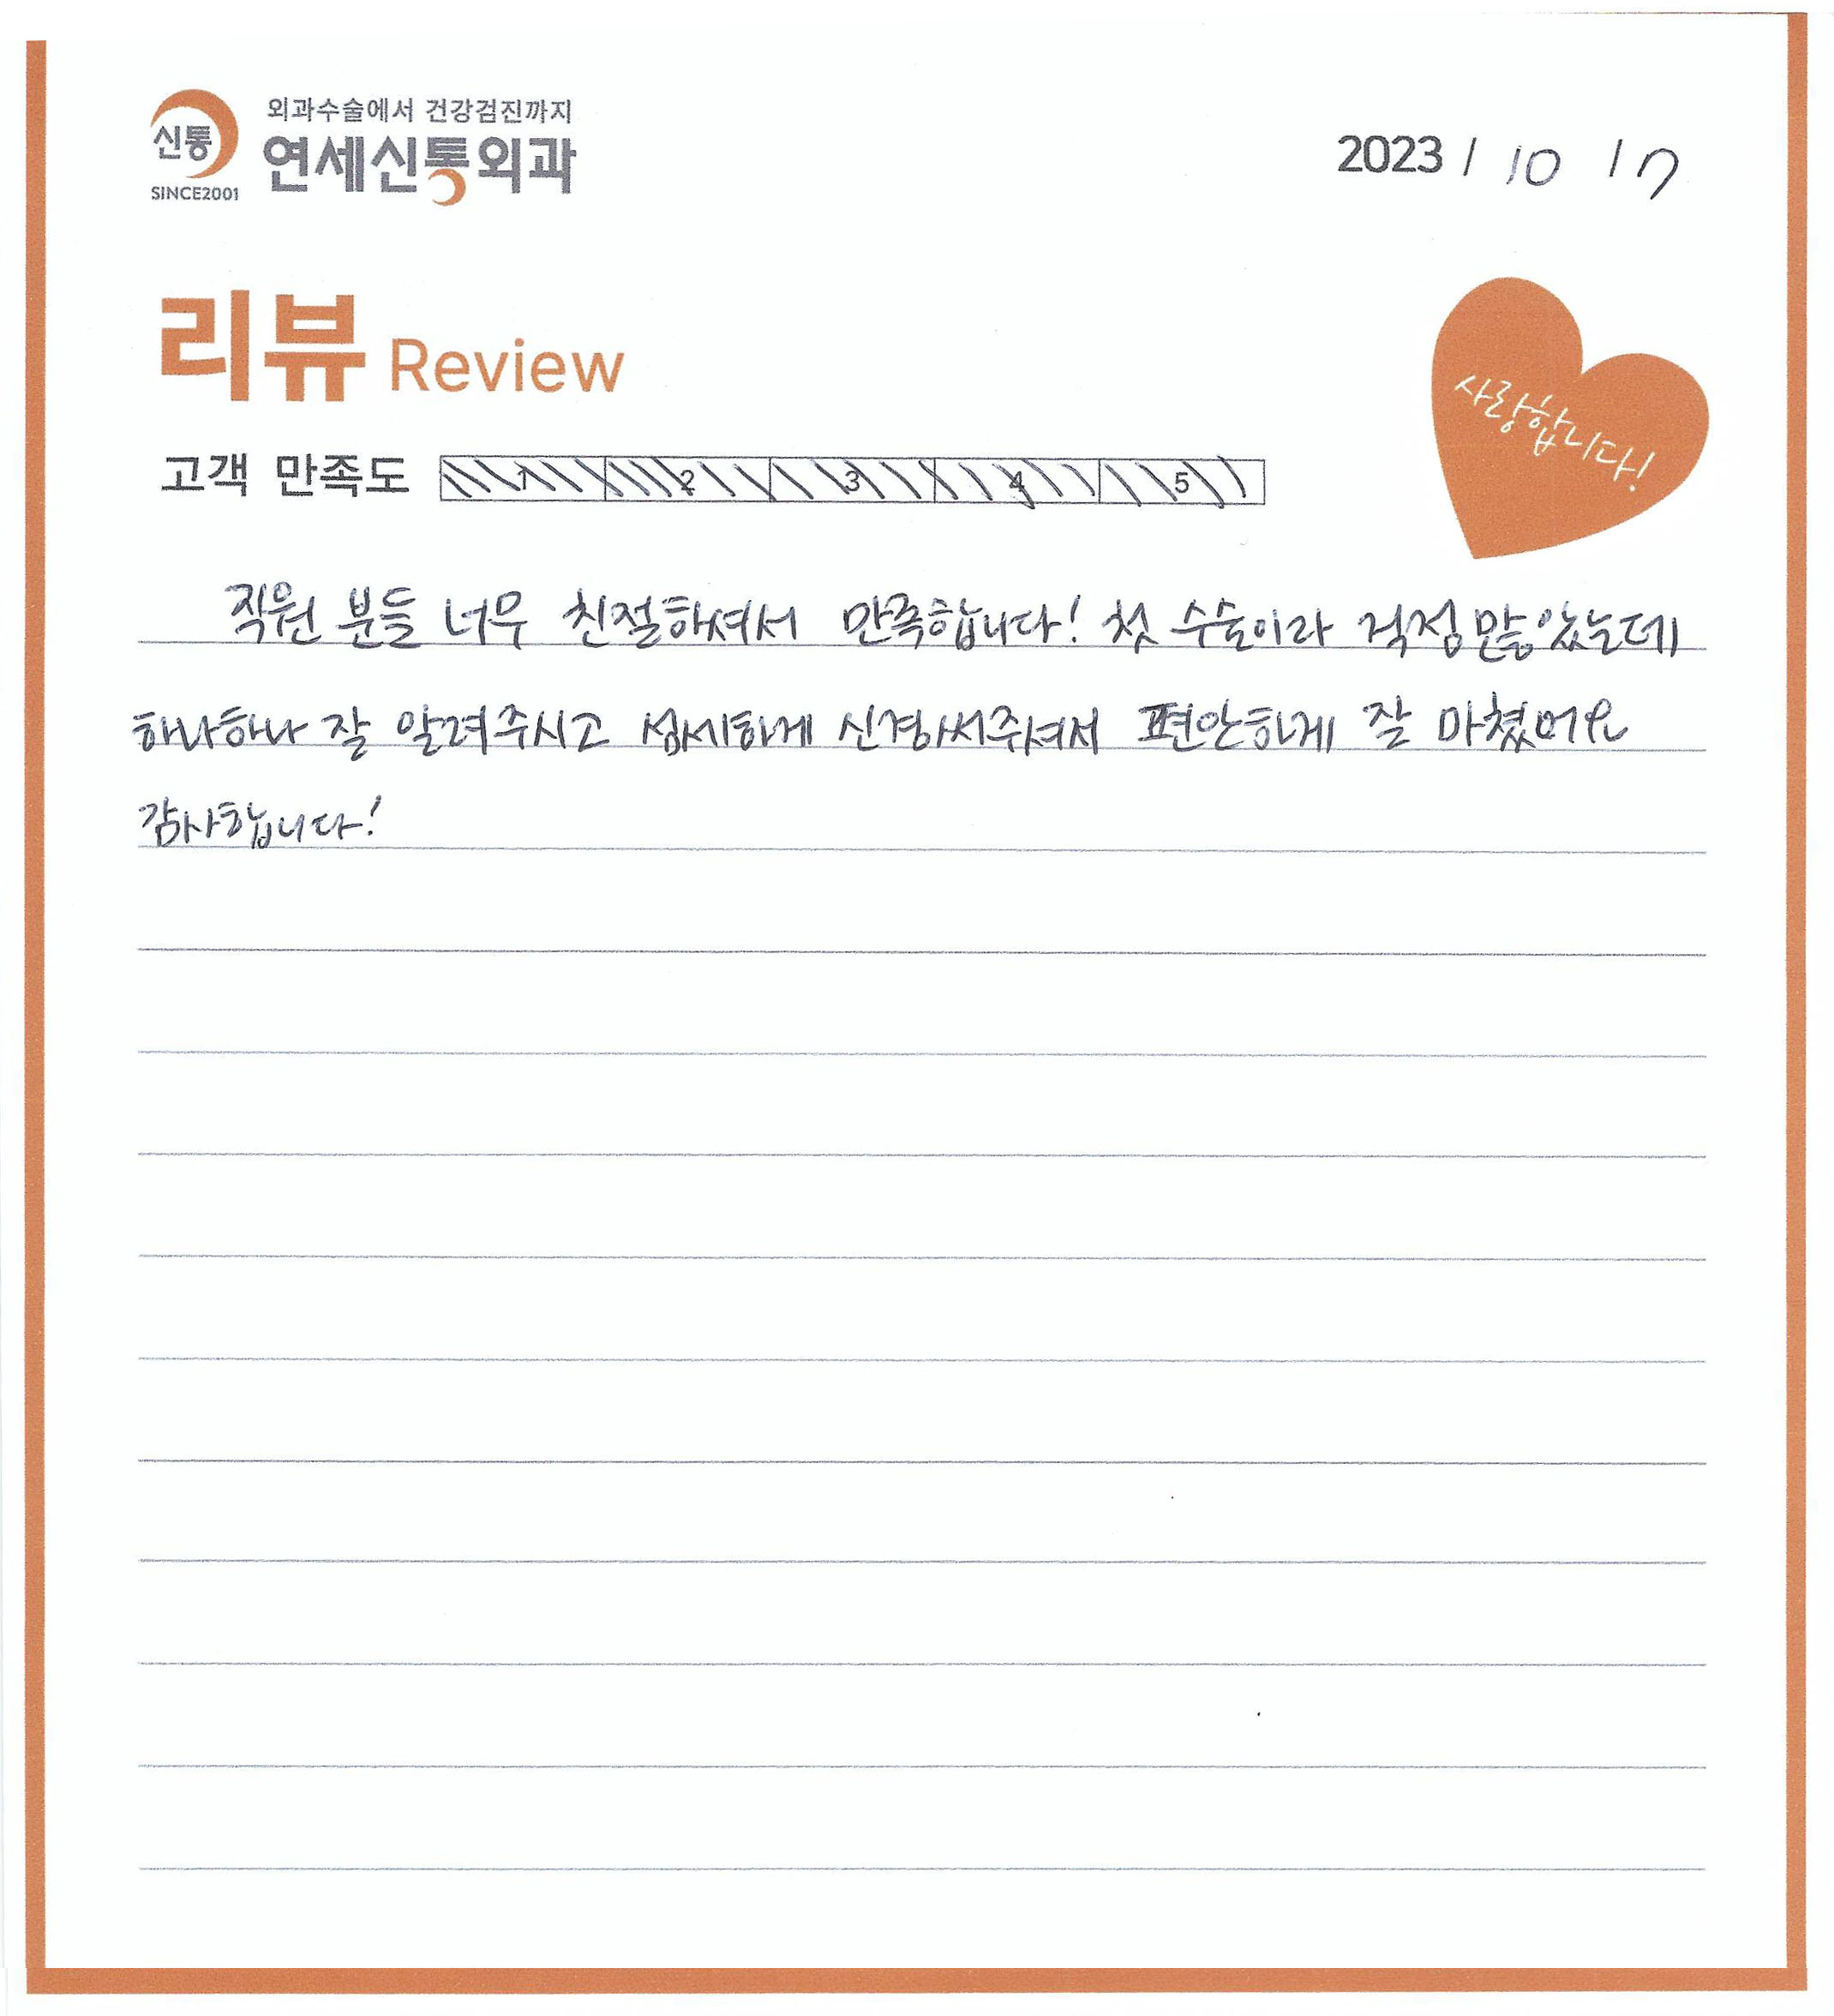 신통
SINCE2001
외과수술에서 건강검진까지
연세신통외과
2023 / 10 17
리뷰 Review
사랑합니다!
고객 만족도 1 2 3 4 5
직원 분들 너무 친절하셔서 만족합니다! 첫 수술이라 걱정 많았는데
하나하나 잘 알려주시고 섬세하게 신경써주셔서 편안하게 잘 마쳤어요
감사합니다!